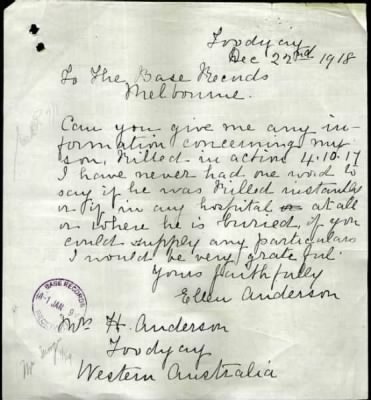 Toodyay
Dec 22nd 1918
To The Base Records
Melbourne.
Can you give me any in-
formation concerning my
son, Killed in action 4.10.17
I have never had one word to
say if he was Killed instantly
or if in any hospital at all
or where he is buried, if you
could supply any particulars
I would be very grateful.
Yours faithfully
Ellen Anderson
BASE RECORDS
Mrs H. Anderson
Toodyay
Western Australia